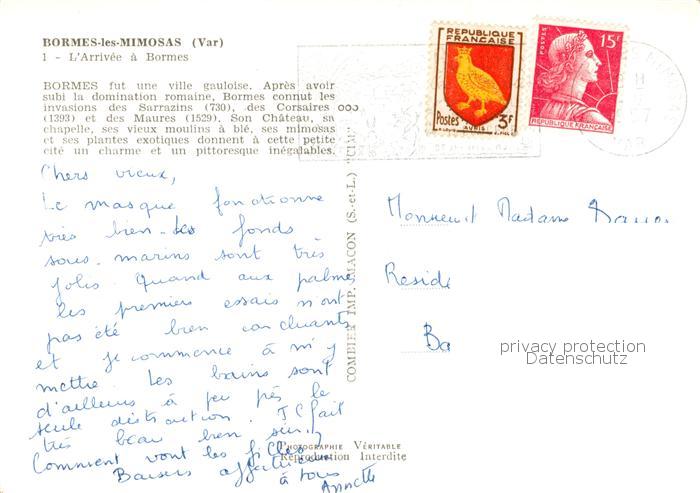 BORMES-les-MIMOSAS (Var)
1 - L'Arrivée à Bormes
BORMES fut une ville gauloise. Après avoir
subi la domination romaine, Bormes connut les
invasions des Sarrazins (730), des Corsaires
(1393) et des Maures (1529). Son Château, sa
chapelle, ses vieux moulins à blé, ses mimosas
et ses plantes exotiques donnent à cette petite
cité un charme et un pittoresque inégalables.
Chers vieux,
Le masque fonctionne
très bien. Les fonds
sous-marins sont très
jolis. Quand aux palmes
les premiers essais n'ont
pas été bien concluants
et je commence à m'y
mettre. Les bains sont
d'ailleurs à peu près la
seule distraction. Il fait
très beau bien sûr.
Comment vont les filles?
Baisers affectueux
à tous
Annette
COMBIER IMP. MACON (S.-et-L.) "CIM"
PHOTOGRAPHIE VÉRITABLE
Reproduction Interdite
REPUBLIQUE
FRANÇAISE
Postes 3F
POSTES
15F
REPUBLIQUE FRANÇAISE
VAR
Monsieur Madame
Reside
Ba
privacy protection
Datenschutz